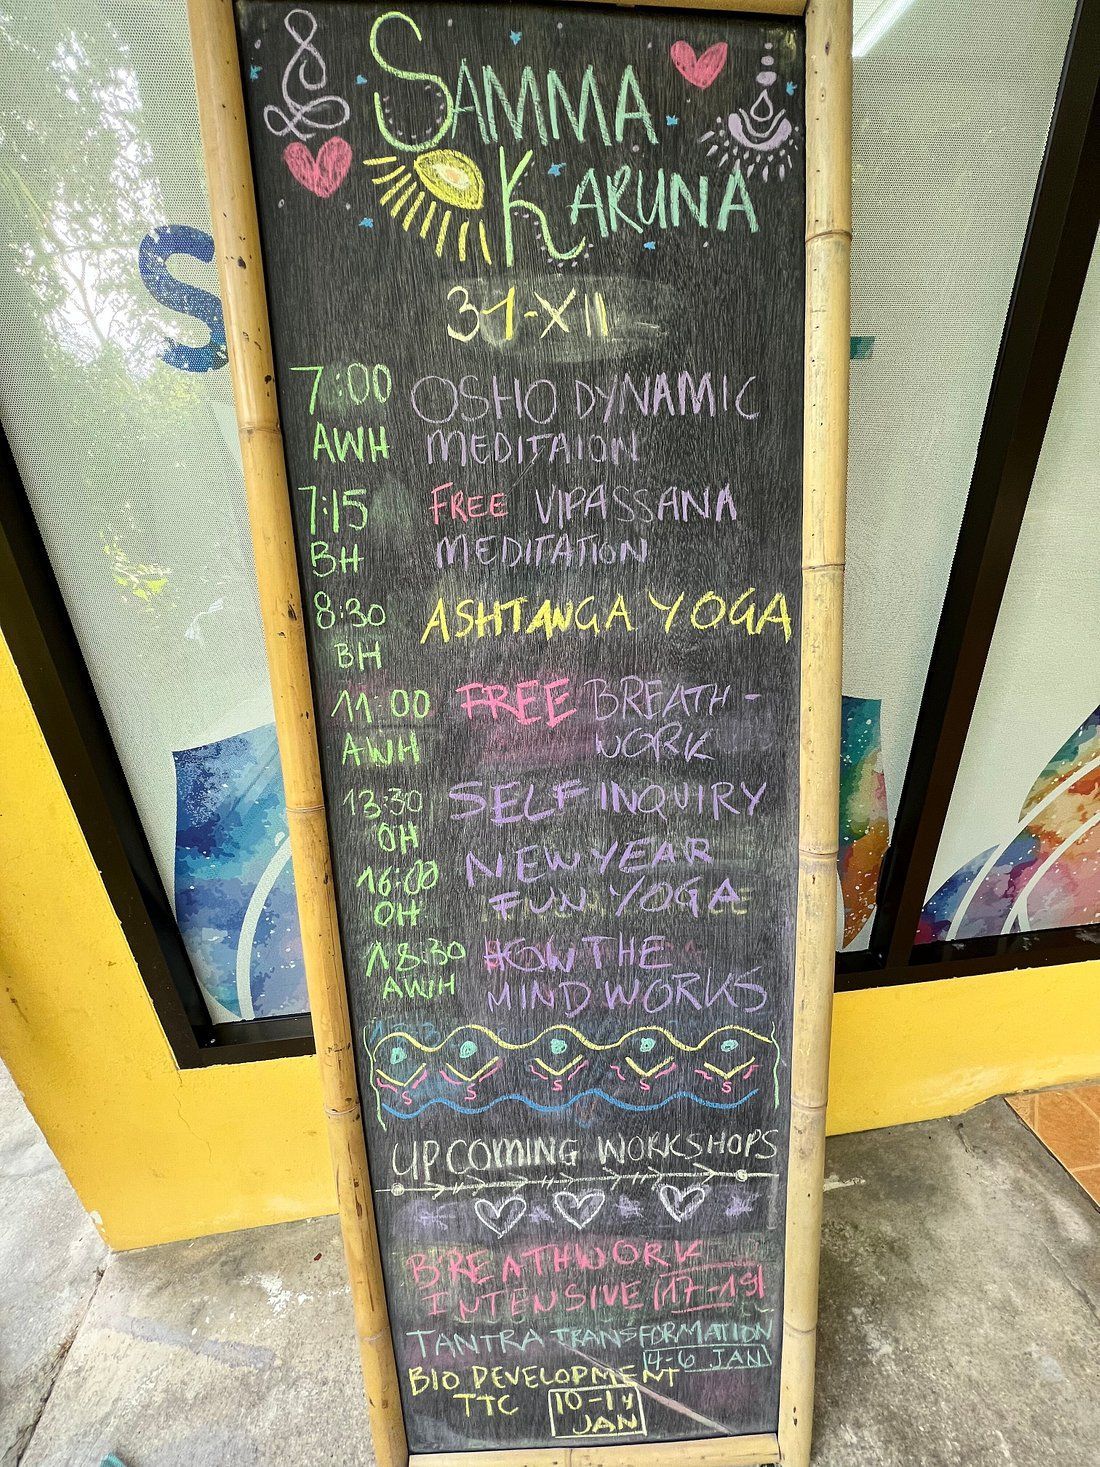 S
SAMMA
KARUNA
31-XII
7:00 OSHO DYNAMIC
AWH MEDITAION
7:15 FREE VIPASSANA
BH MEDITATION
8:30 ASHTANGA YOGA
BH
11:00 FREE BREATH-
AWH WORK
13:30 SELF INQUIRY
OH
16:00 NEW YEAR
OH FUN YOGA
18:30 HOW THE
AWH MIND WORKS
UPCOMING WORKSHOPS
BREATHWORK
INTENSIVE 17-19
TANTRA TRANSFORMATION
4-6 JAN
BIO DEVELOPMENT
TTC 10-14
JAN